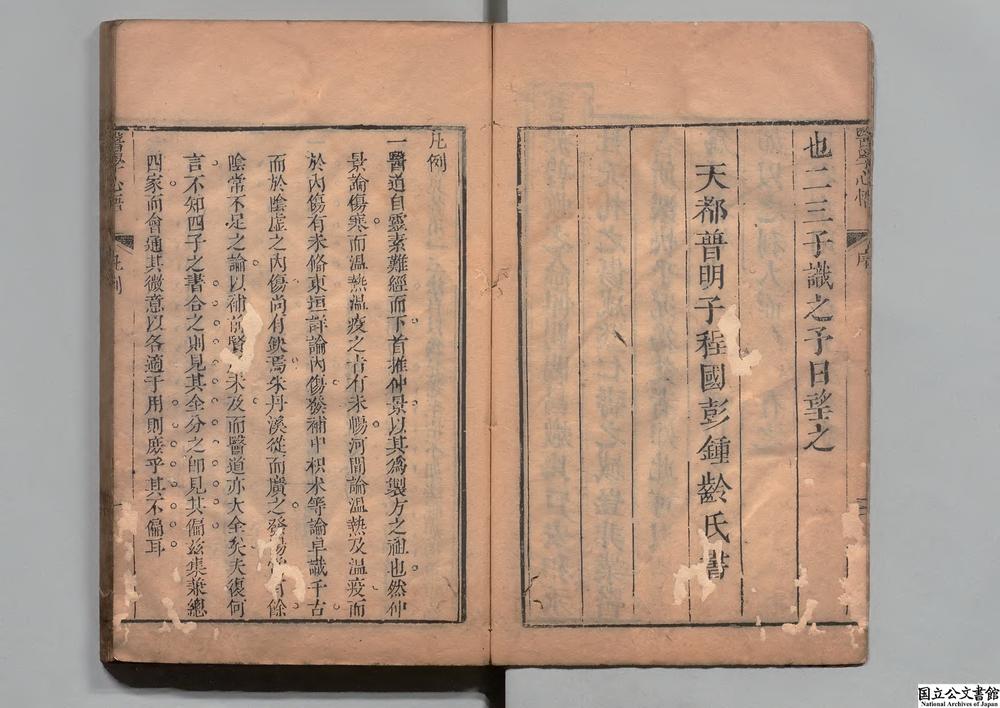 也二三子識之予日望之
天都普明子程國彭鍾齡氏書
醫學心悟
凡例
一醫道自靈素難經而下首推仲景以其為製方之祖也然仲
景論傷寒而溫熱溫疫之旨有未暢河間論溫熱及溫疫而
於內傷有未備東垣詳論內傷發補中枳朮等論卓識千古
而於陰虛之內傷尚有缺焉朱丹溪從而廣之發陽常有餘
陰常不足之論以補前賢所未及而醫道亦大全矣夫復何
言不知四子之書合之則見其全分之即見其偏茲集兼總
四家而會通其微意以各適于用則庶乎其不偏耳
醫學心悟
凡例
国立公文書館
National Archives of Japan